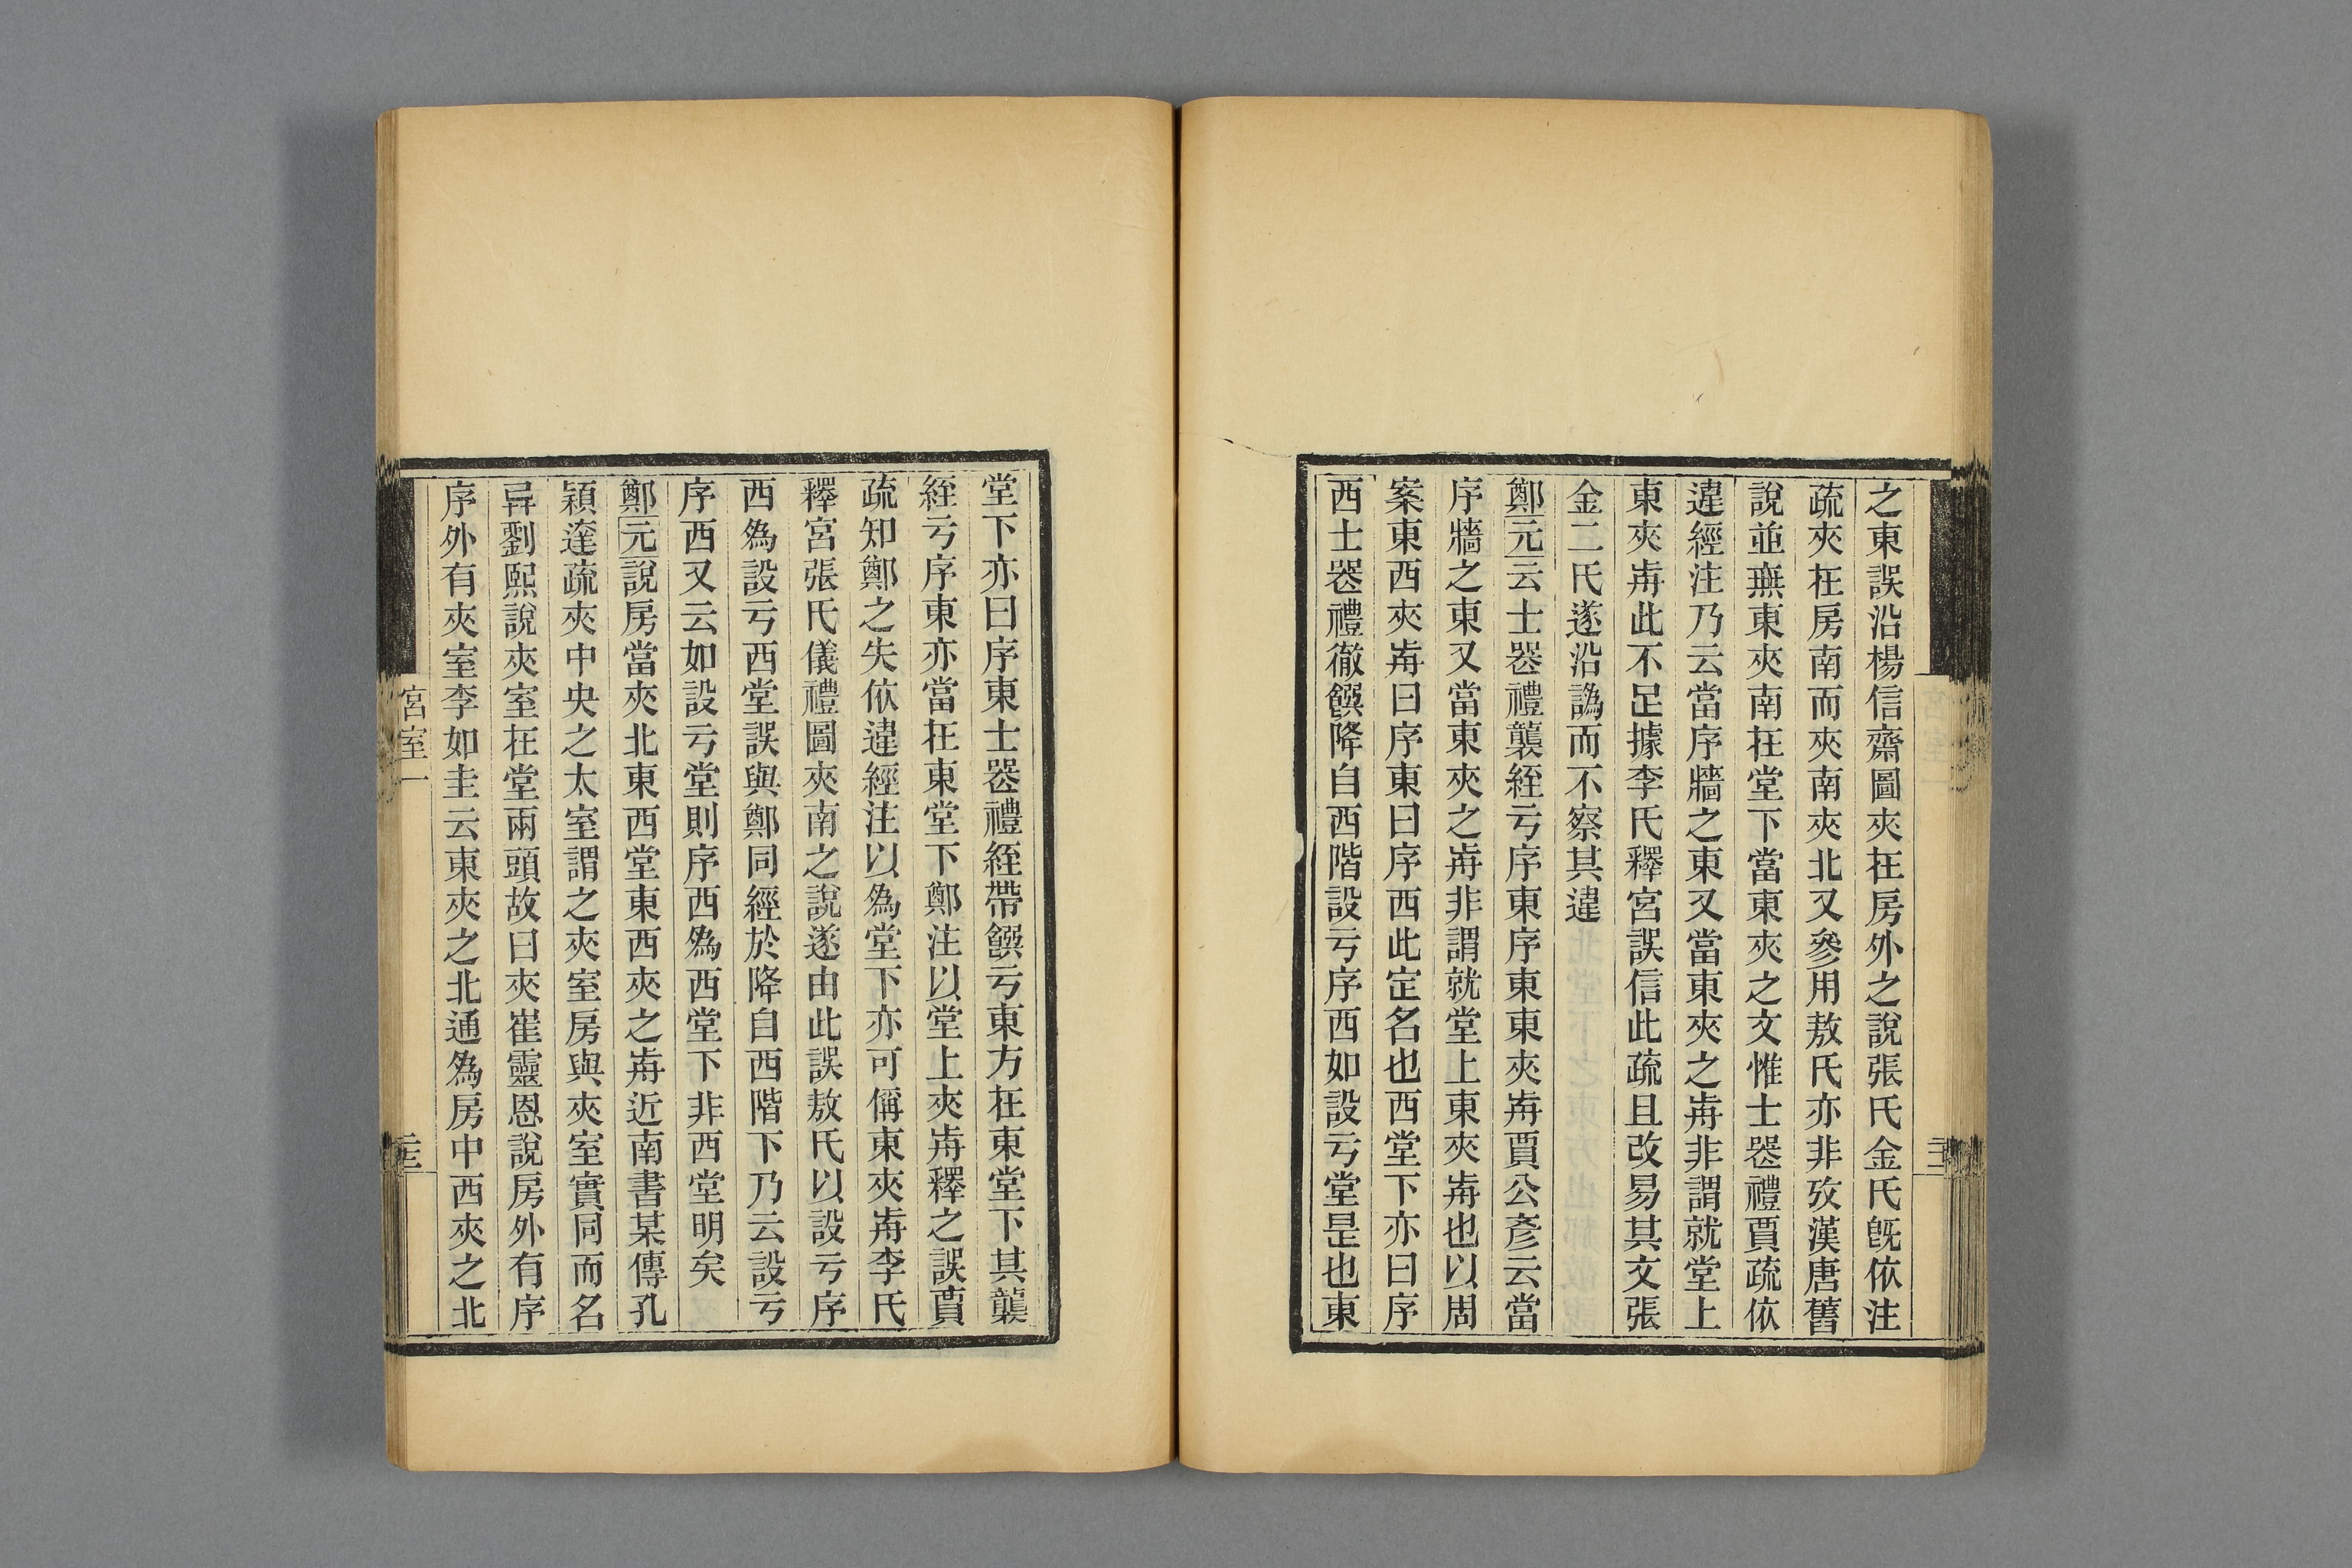 之東誤沿楊信齋圖夾在房外之說張氏金氏旣依注
疏夾在房南而夾南夾北又參用敖氏亦非攷漢唐舊
說並無東夾南在堂下當東夾之文惟士喪禮賈疏依
違經注乃云當序牆之東又當東夾之歬非謂就堂上
東夾歬此不足據李氏釋宮誤信此疏且改易其文張
金二氏遂沿譌而不察其違
鄭元云士喪禮襲絰亏序東序東東夾歬賈公彥云當
序牆之東又當東夾之歬非謂就堂上東夾歬也以周
案東西夾歬曰序東曰序西此定名也西堂下亦曰序
西士喪禮徹饌降自西階設亏序西如設亏堂是也東
堂下亦曰序東士喪禮絰帶饌亏東方在東堂下其襲
絰亏序東亦當在東堂下鄭注以堂上夾歬釋之誤賈
疏知鄭之失依違經注以爲堂下亦可偁東夾歬李氏
釋宮張氏儀禮圖夾南之說遂由此誤敖氏以設亏序
西爲設亏西堂誤與鄭同經於降自西階下乃云設亏
序西又云如設亏堂則序西爲西堂下非西堂明矣
鄭元說房當夾北東西堂東西夾之歬近南書某傳孔
穎達疏夾中央之太室謂之夾室房與夾室實同而名
异劉熙說夾室在堂兩頭故曰夾崔靈恩說房外有序
序外有夾室李如圭云東夾之北通爲房中西夾之北
宮室一